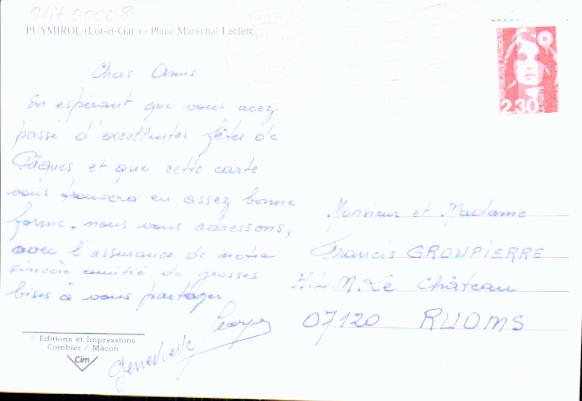 047 00008
PUYMIROL (Lot-et-Gar.) - Place Maréchal Leclerc
Chers Amis
En espérant que vous avez
passé d'excellentes fêtes de
Pâques et que cette carte
vous trouvera en assez bonne
forme, nous vous adressons,
avec l'assurance de notre
sincère amitié de grosses
bises à vous partager
Georges
Geneviève
Monsieur et Madame
Francis GROUPIERRE
H.L.M. Le Château
07120 RUOMS
2,30
© Editions et Impressions
Combier / Mâcon
Cim